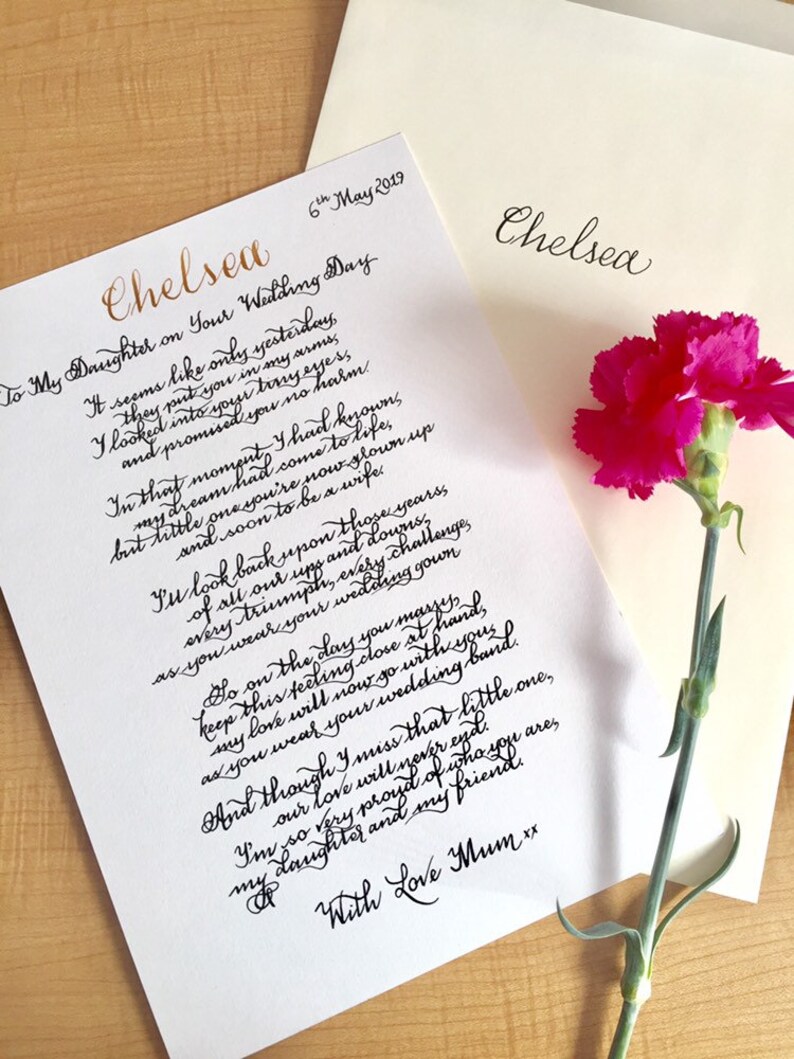 6th May 2019
Chelsea
To My Daughter on Your Wedding Day
It seems like only yesterday,
they put you in my arms,
I looked into your tiny eyes,
and promised you no harm.
In that moment I had known,
my dream had come to life,
but little one you're now grown up
and soon to be a wife.
I'll look back upon those years,
of all our ups and downs,
every triumph, every challenge,
as you wear your wedding gown
So on the day you marry,
keep this feeling close at hand,
my love will now go with you,
as you wear your wedding band.
And though I miss that little one,
our love will never end.
I'm so very proud of who you are,
my daughter and my friend.
With Love Mum xx
Chelsea